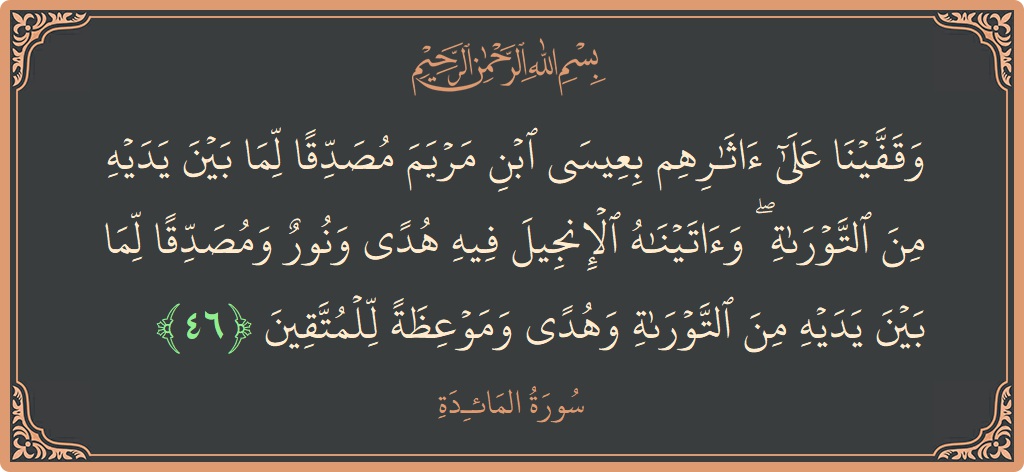 بِسْمِ اللَّهِ الرَّحْمَٰنِ الرَّحِيمِ
وَقَفَّيْنَا عَلَىٰٓ ءَاثَـٰرِهِم بِعِيسَى ٱبْنِ مَرْيَمَ مُصَدِّقًا لِّمَا بَيْنَ يَدَيْهِ
مِنَ ٱلتَّوْرَىٰةِ ۖ وَءَاتَيْنَـٰهُ ٱلْإِنجِيلَ فِيهِ هُدًى وَنُورٌ وَمُصَدِّقًا لِّمَا
بَيْنَ يَدَيْهِ مِنَ ٱلتَّوْرَىٰةِ وَهُدًى وَمَوْعِظَةً لِّلْمُتَّقِينَ ﴿٤٦﴾
سُورَةُ المَائـِدَةِ